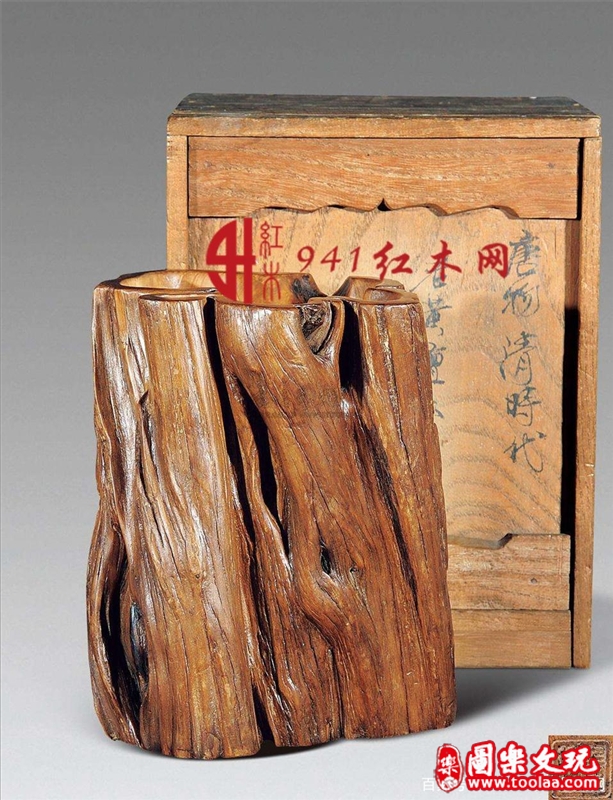 紅木
941红木网
唐物清時代
黄
百
樂
圖樂文玩
www.toolaa.com